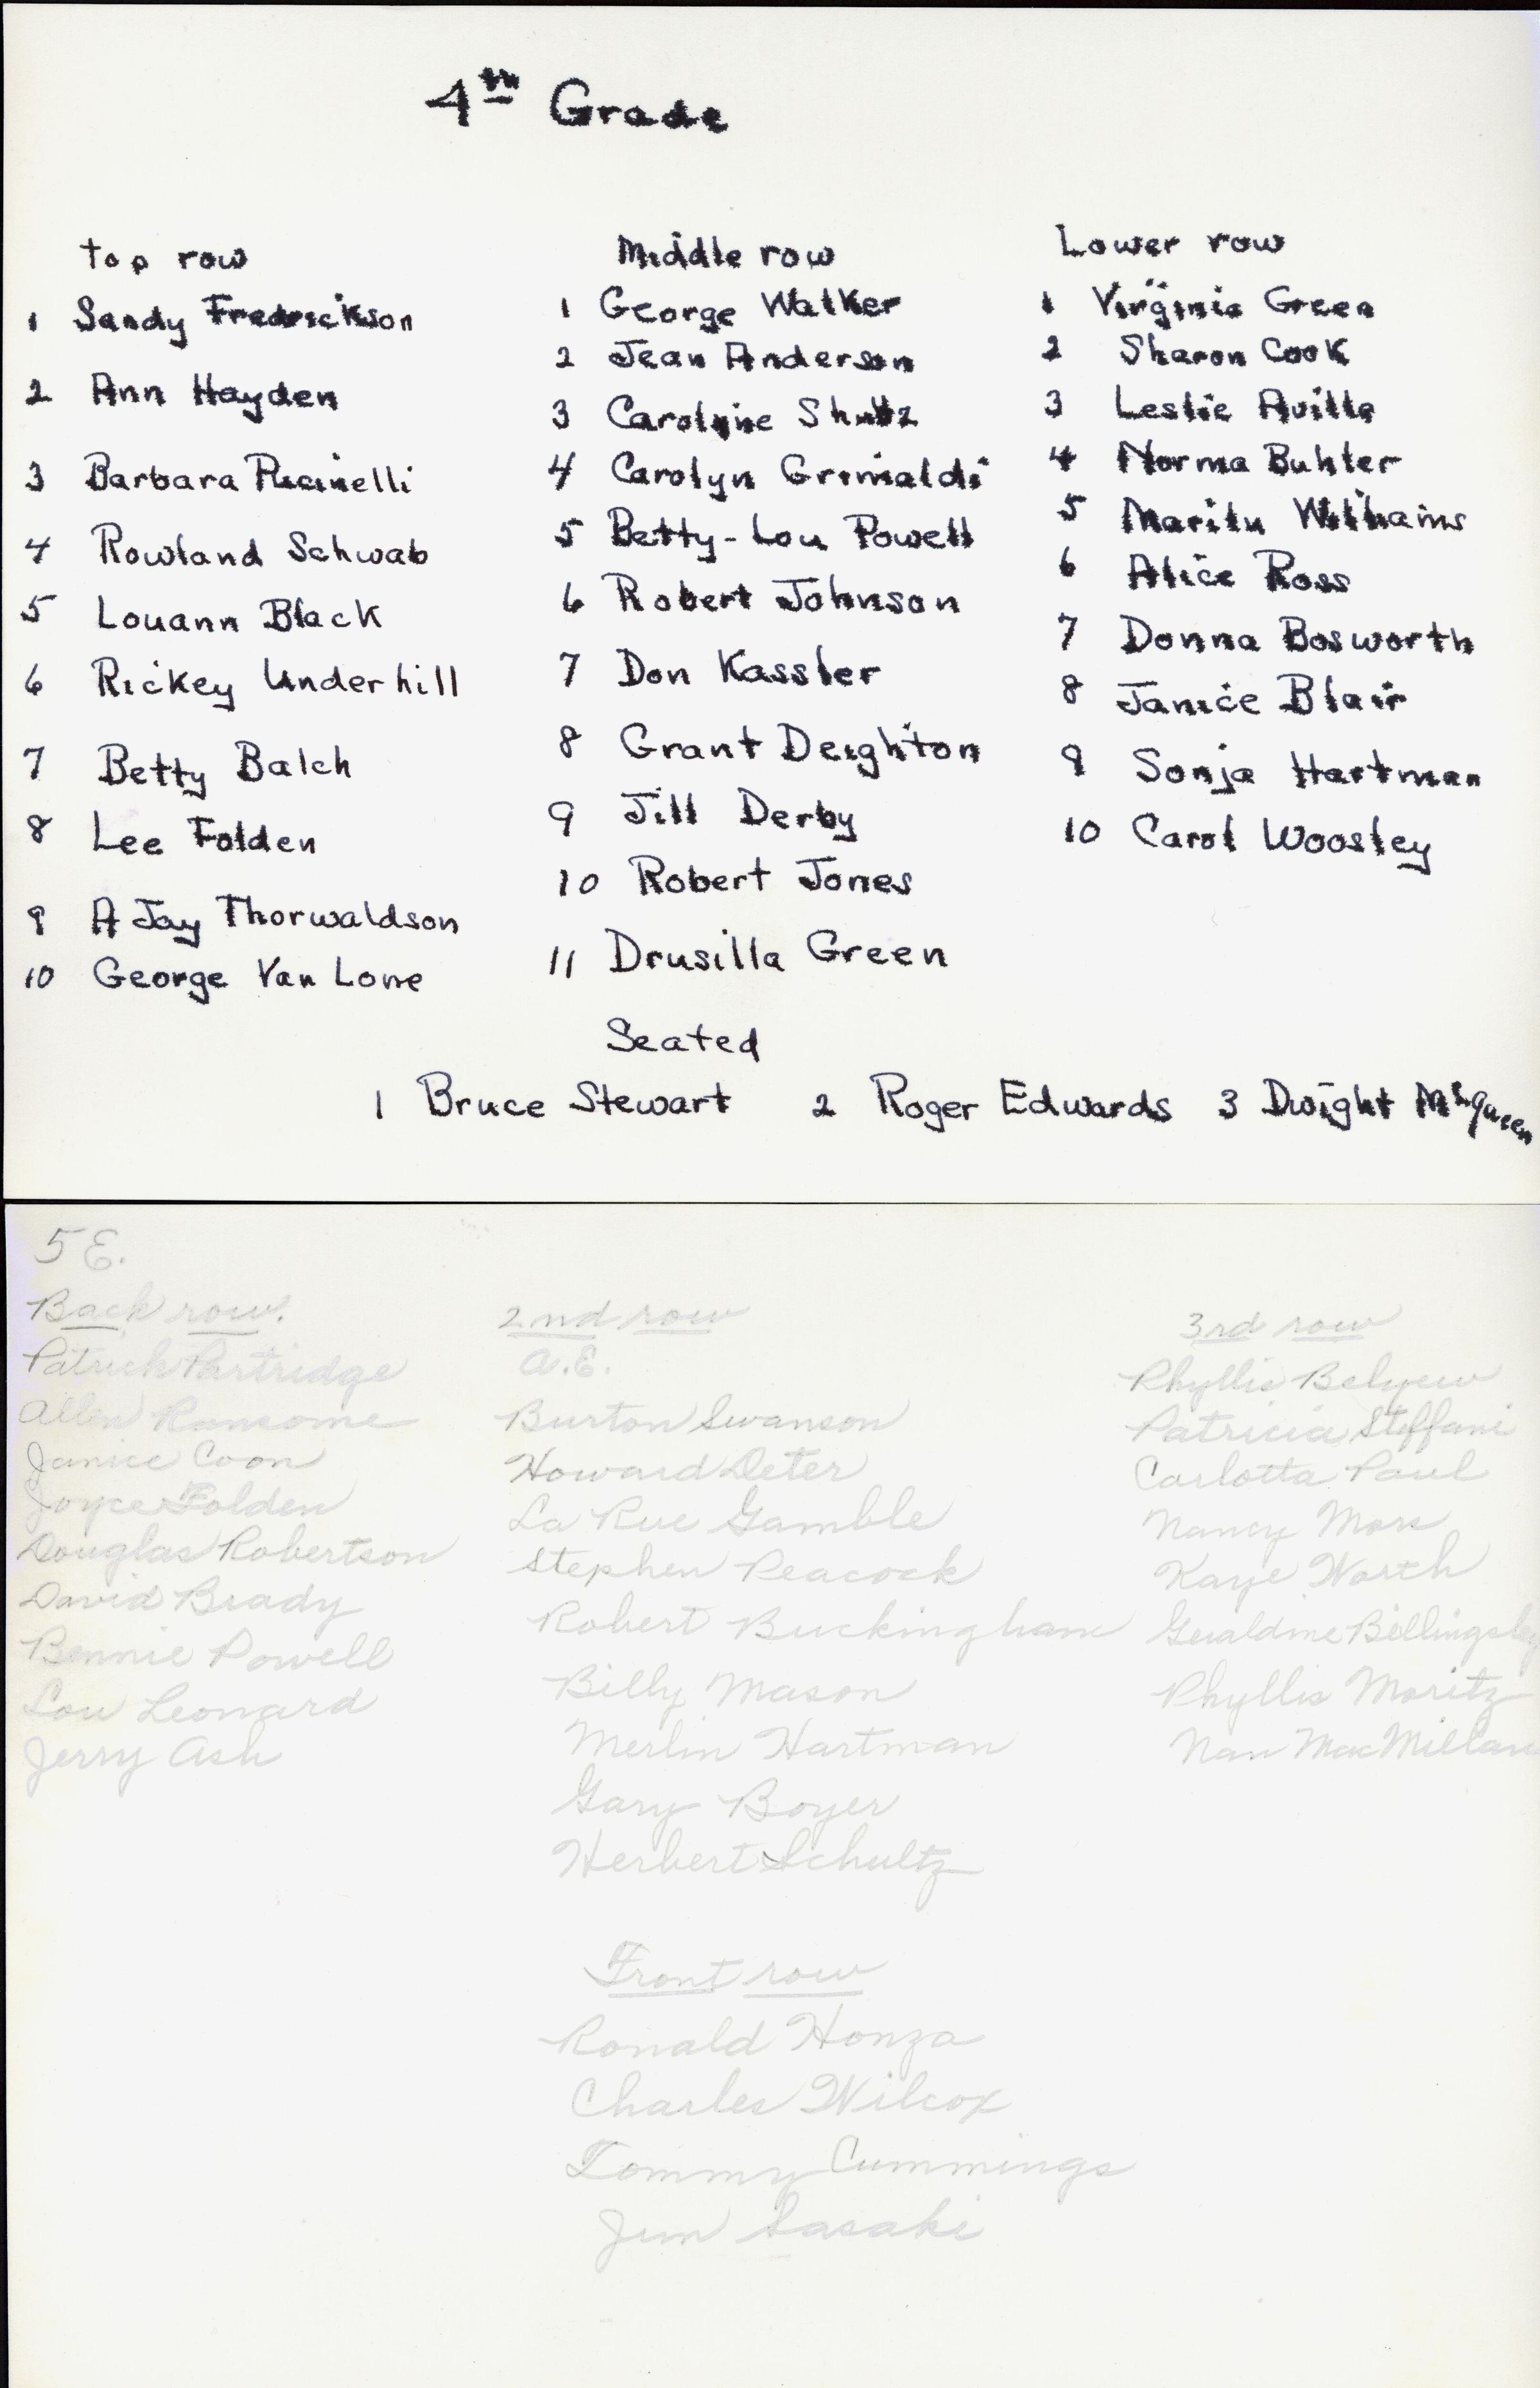 4th Grade
top row
1 Sandy Fredrickson
2 Ann Hayden
3 Barbara Puccinelli
4 Rowland Schwab
5 Louann Black
6 Rickey Underhill
7 Betty Balch
8 Lee Folden
9 A Jay Thorwaldson
10 George Van Lone
Middle row
1 George Walker
2 Jean Anderson
3 Carolyne Shultz
4 Carolyn Grimaldi
5 Betty-Lou Powell
6 Robert Johnson
7 Don Kassler
8 Grant Deighton
9 Jill Derby
10 Robert Jones
11 Drusilla Green
Lower row
1 Virginia Green
2 Sharon Cook
3 Leslie Avilla
4 Norma Buhler
5 Marilu Williams
6 Alice Ross
7 Donna Bosworth
8 Janice Blair
9 Sonja Hartman
10 Carol Woosley
Seated
1 Bruce Stewart 2 Roger Edwards 3 Dwight McQueen
5 E.
Back row.
Patrick Partridge
Allen Ransome
Janice Coon
Joyce Folden
Douglas Robertson
David Brady
Bennie Powell
Lou Leonard
Jerry Ash
2nd row
A.E.
Burton Swanson
Howard Deter
La Rue Gamble
Stephen Peacock
Robert Buckingham
Billy Mason
Merlin Hartman
Gary Boyer
Herbert Schultz
3rd row
Phyllis Belyew
Patricia Steffani
Carlotta Paul
Nancy Mors
Kaye Worth
Geraldine Billingsley
Phyllis Moritz
Nan MacMillan
Front row
Ronald Honza
Charles Wilcox
Tommy Cummings
Jim Sasaki